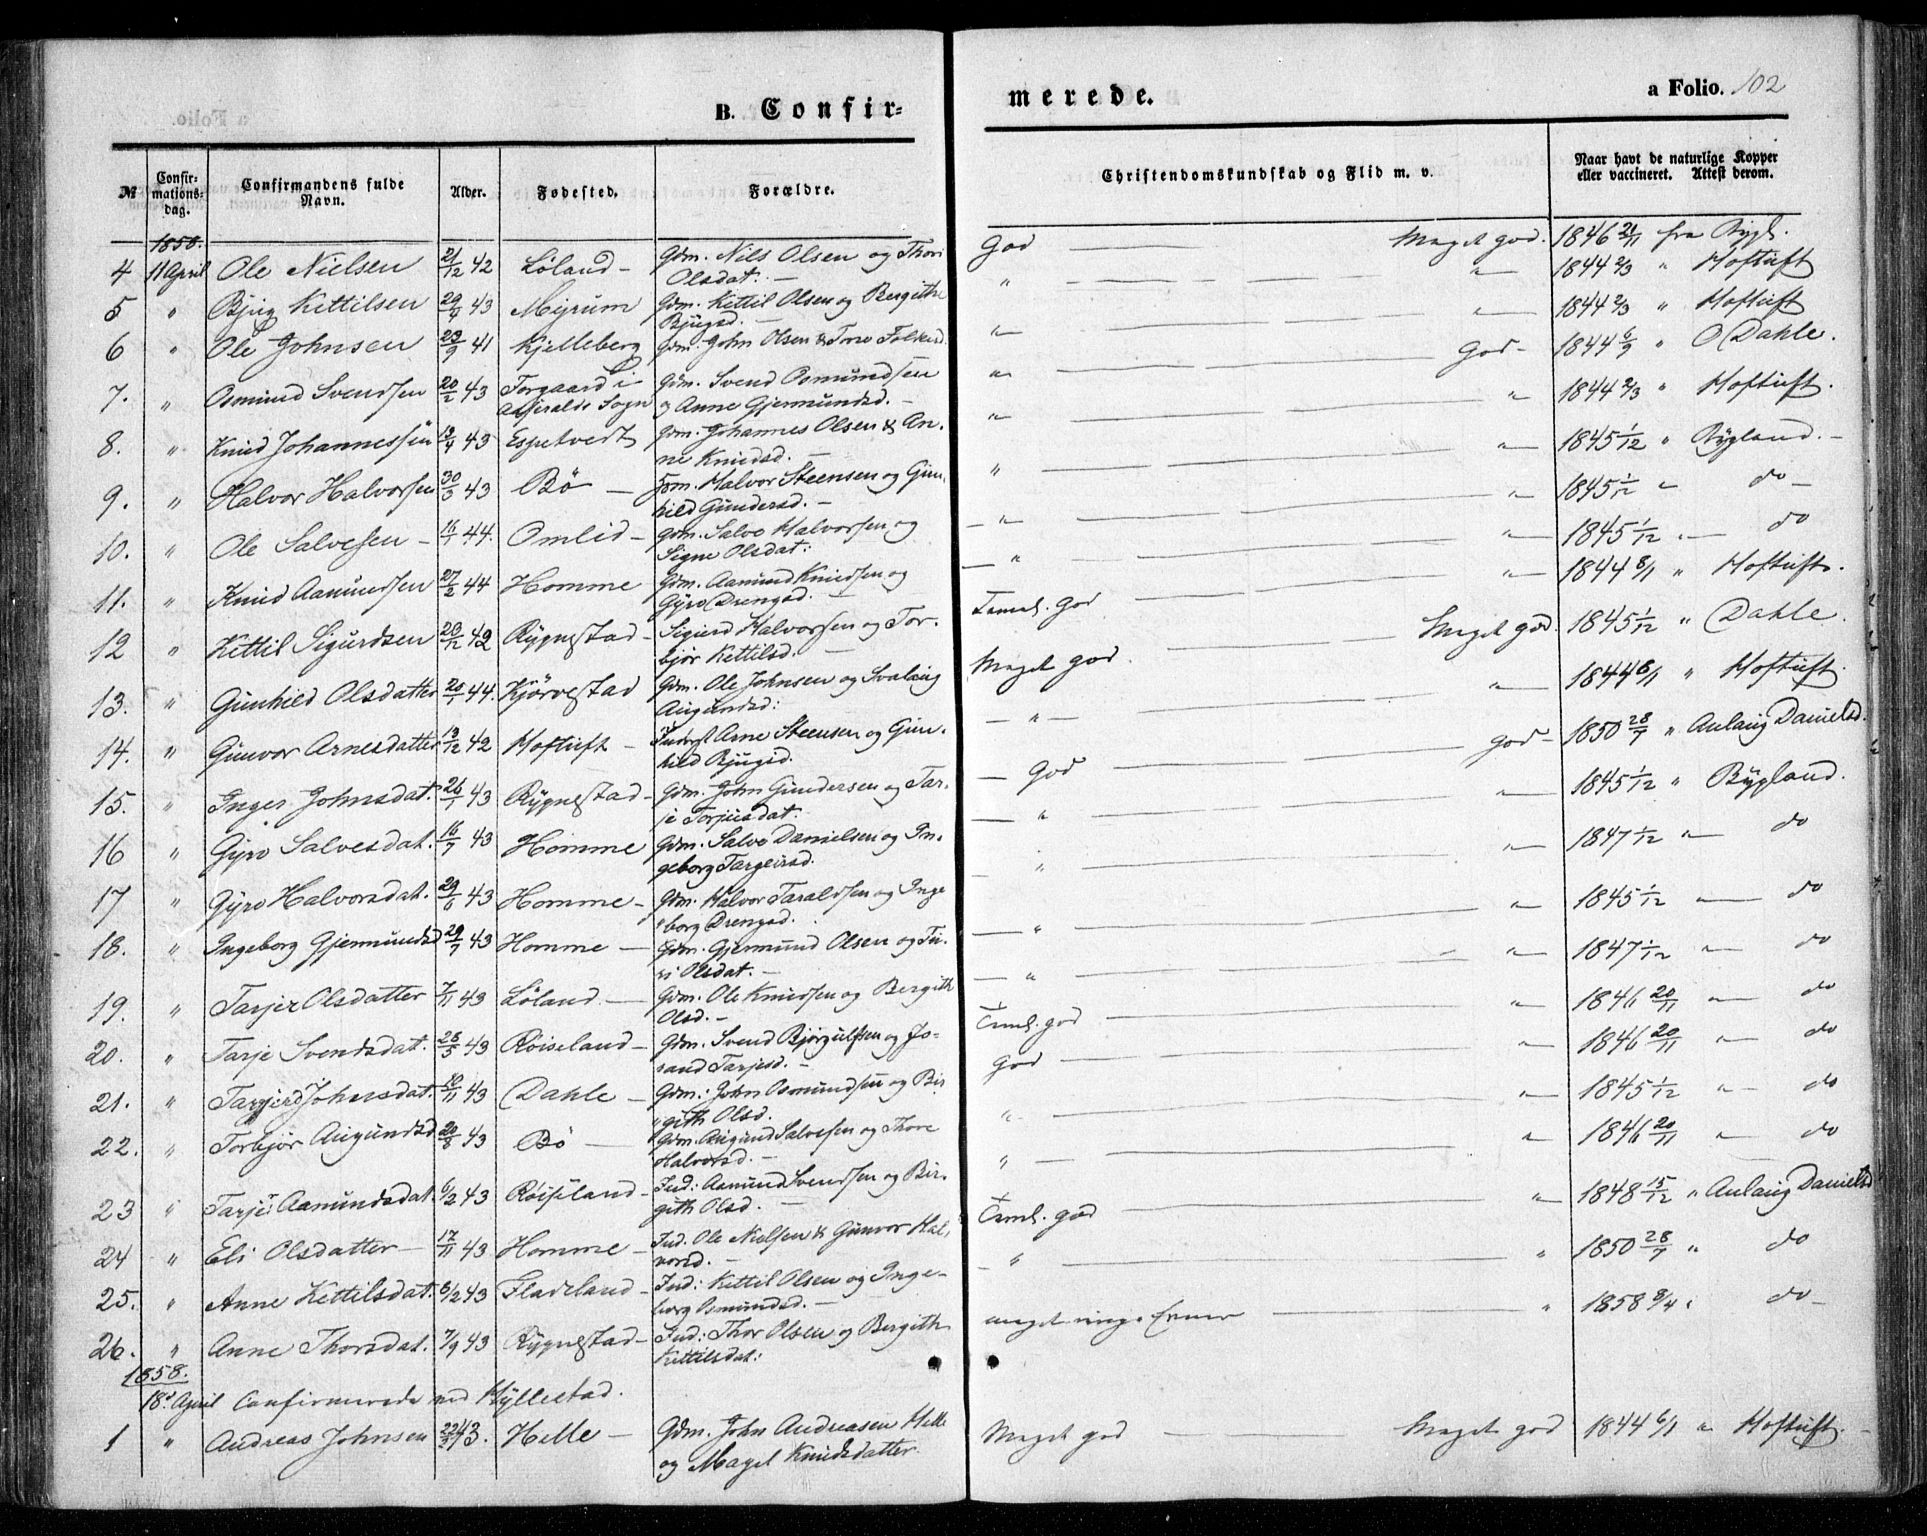 B. Confir=
merede.
a Folio. 102
№
Confir-
mations-
dag.
Confirmandens fulde
Navn.
Alder.
Fødested.
Forældre.
Christendomskundskab og Flid m. v.
Naar havt de naturlige Kopper
eller vaccineret. Attest derom.
1858.
4 11 April Ole Nielsen 21/12 42 Løland - Gdm. Nils Olsen og Thori
Olsdat: - God Meget god. 1846 21/11 fra Bygl.
5 " Bjug Kettilsen 29/9 43 Myrum Gdm. Kettil Olsen og Bergithe
Bjugsd. - " " 1844 2/3 " Hoftuft
6 " Ole Johnsen 23/9 41 Kjelleberg Gdm. John Olsen & Tone Folkesd. " " 1844 2/3 " Hoftuft
7. " Osmund Svendsen 20/2 43 Torgaard i
Aaseralds Sogn Gdm. Svend Osmundsen
og Anne Gjermundsd. - " God - 1844 6/9 " O Dahle.
8. " Knud Johannessen 13/4 43 Espetvedt Gdm. Johannes Olsen & An-
ne Knudsd. - " " 1844 2/3 " Hoftuft.
9. " Halvor Halvorsen 30/3 43 Bö - Gdm. Halvor Steensen og Gun-
hild Gundersd. - " " 1845 1/12 " Bygland. -
10. " Ole Salvesen - 16/1 44. Omlid - Gdm. Salve Halvorsen og
Signe Olsdat: - " " 1845 1/12 " do -
11. " Knud Aamundsen 27/2 44 Homme Gdm. Aamund Knudsen og
Gyro Drengsd. - " " 1845 1/12 " do
12 " Kettil Sigurdsen 28/12 42 Rygnestad - Sigurd Halvorsen og Tor-
bjør Kettilsd. - Temel. God " 1844 8/1 " Hoftuft.
13. " Gunhild Olsdatter 20/1 44. Kjörvestad Gdm. Ole Johnsen og Svalaug
Augundsd: Meget god. Meget god. 1845 1/12 " Dahle.
14. " Gunvor Arnesdatter 13/12 42 Hoftuft - Inderst Arne Steensen og Gun-
hild Bjugsd. - " - " 1844 6/1 " Hoftuft.
15. " Inger Johnsdat. 26/1 43 Rygnestad - Gdm. John Gundersen og Tar-
je Torjusdat. - God God - 1850 28/7 " Aulaug Danielsd.
16 " Gyro Salvesdat. 16/7 43 Homme Gdm. Salve Danielsen og In-
geborg Targeirsd. - " " 1845 1/12 " Bygland.
17 " Gyro Halvorsdat. 29/6 43 Homme - Gdm. Halvor Taraldsen og Inge
borg Drengsd. " " 1847 1/12 " do
18. " Ingeborg Gjermundsd 29/7 43 Homme - Gdm. Gjermund Olsen og Tu-
ri Olsdat. - - " " 1845 1/12 - do
19. " Tarjer Olsdatter 7/11 43 Löland - Gdm. Ole Knudsen og Bergith
Olsd. - - " " 1847 1/12 " do
20. " Tarje Svendsdat. 28/5 43 Röiseland - Gdm. Svend Björgulfsen og Jo-
rand Tarjesd. - Teml. god " 1846 20/11 " do
21. " Targerd Johnsdat. 10/11 43 Dahle - Gdm: John Osmundsen og Bir-
gith Olsd. God " 1846 20/11 " do
22. " Torbjör Augundsd 20/8 43 Bö - Gdm. Augund Salvesen og Thore
Halvorsd. - " " 1845 1/12 " do
23 " Tarjer Aamundsdat. 6/2 43 Röiseland - Ind: Aamund Svendsen og Bir-
gith Olsd. - " " 1846 20/11 " do
24 " Eli Olsdatter - 17/11 43 Homme - Ind. Ole Nielsen & Gunvor Hal-
vorsd. - Teml. god " 1848 15/12 " Aulaug Danielsd
25. " Anne Kettilsdat. 8/2 43 Fladeland - Ind: Kettil Olsen og Inge-
borg Osmundsd. - - " " 1850 28/7 " do
26. " Anne Thorsdat. 7/9 43 Rygnestad - Ind: Thor Olsen og Bergith
Kettilsdat: meget ringe Evner " 1858 8/4 " do -
1858.
18de April Confirmerede ved Hyllestad.
1 " Andreas Johnsen 22/2 43. Helle - Gdm. John Andreasen Helle
og Magel Knudsdatter. Meget god Meget god 1844 6/1 " Hoftuft. -